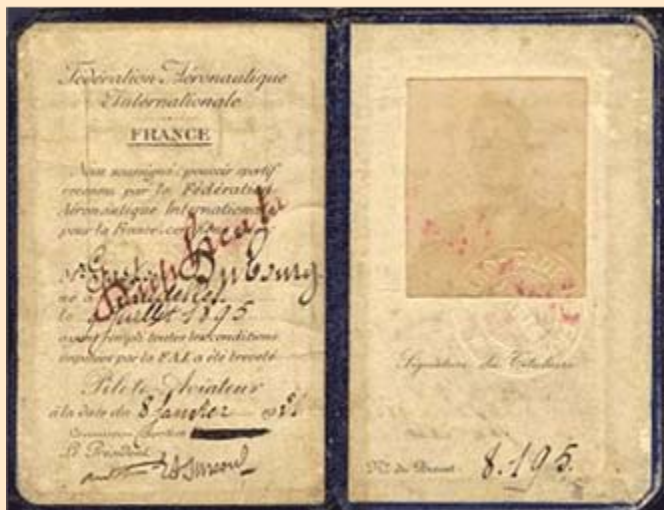 Fédération Aéronautique
Internationale
FRANCE
Nous soussigné, pouvoir sportif
reconnu par la Fédération
Aéronautique Internationale
pour la France, certifions que
Duplicata
Mr Dubourg
né à
le Juillet 1895
ayant rempli toutes les conditions
imposées par la F.A.I. a été breveté
Pilote-Aviateur
à la date du 8 Janvier
Le Président
Signature du Titulaire
No du Brevet 8.195.